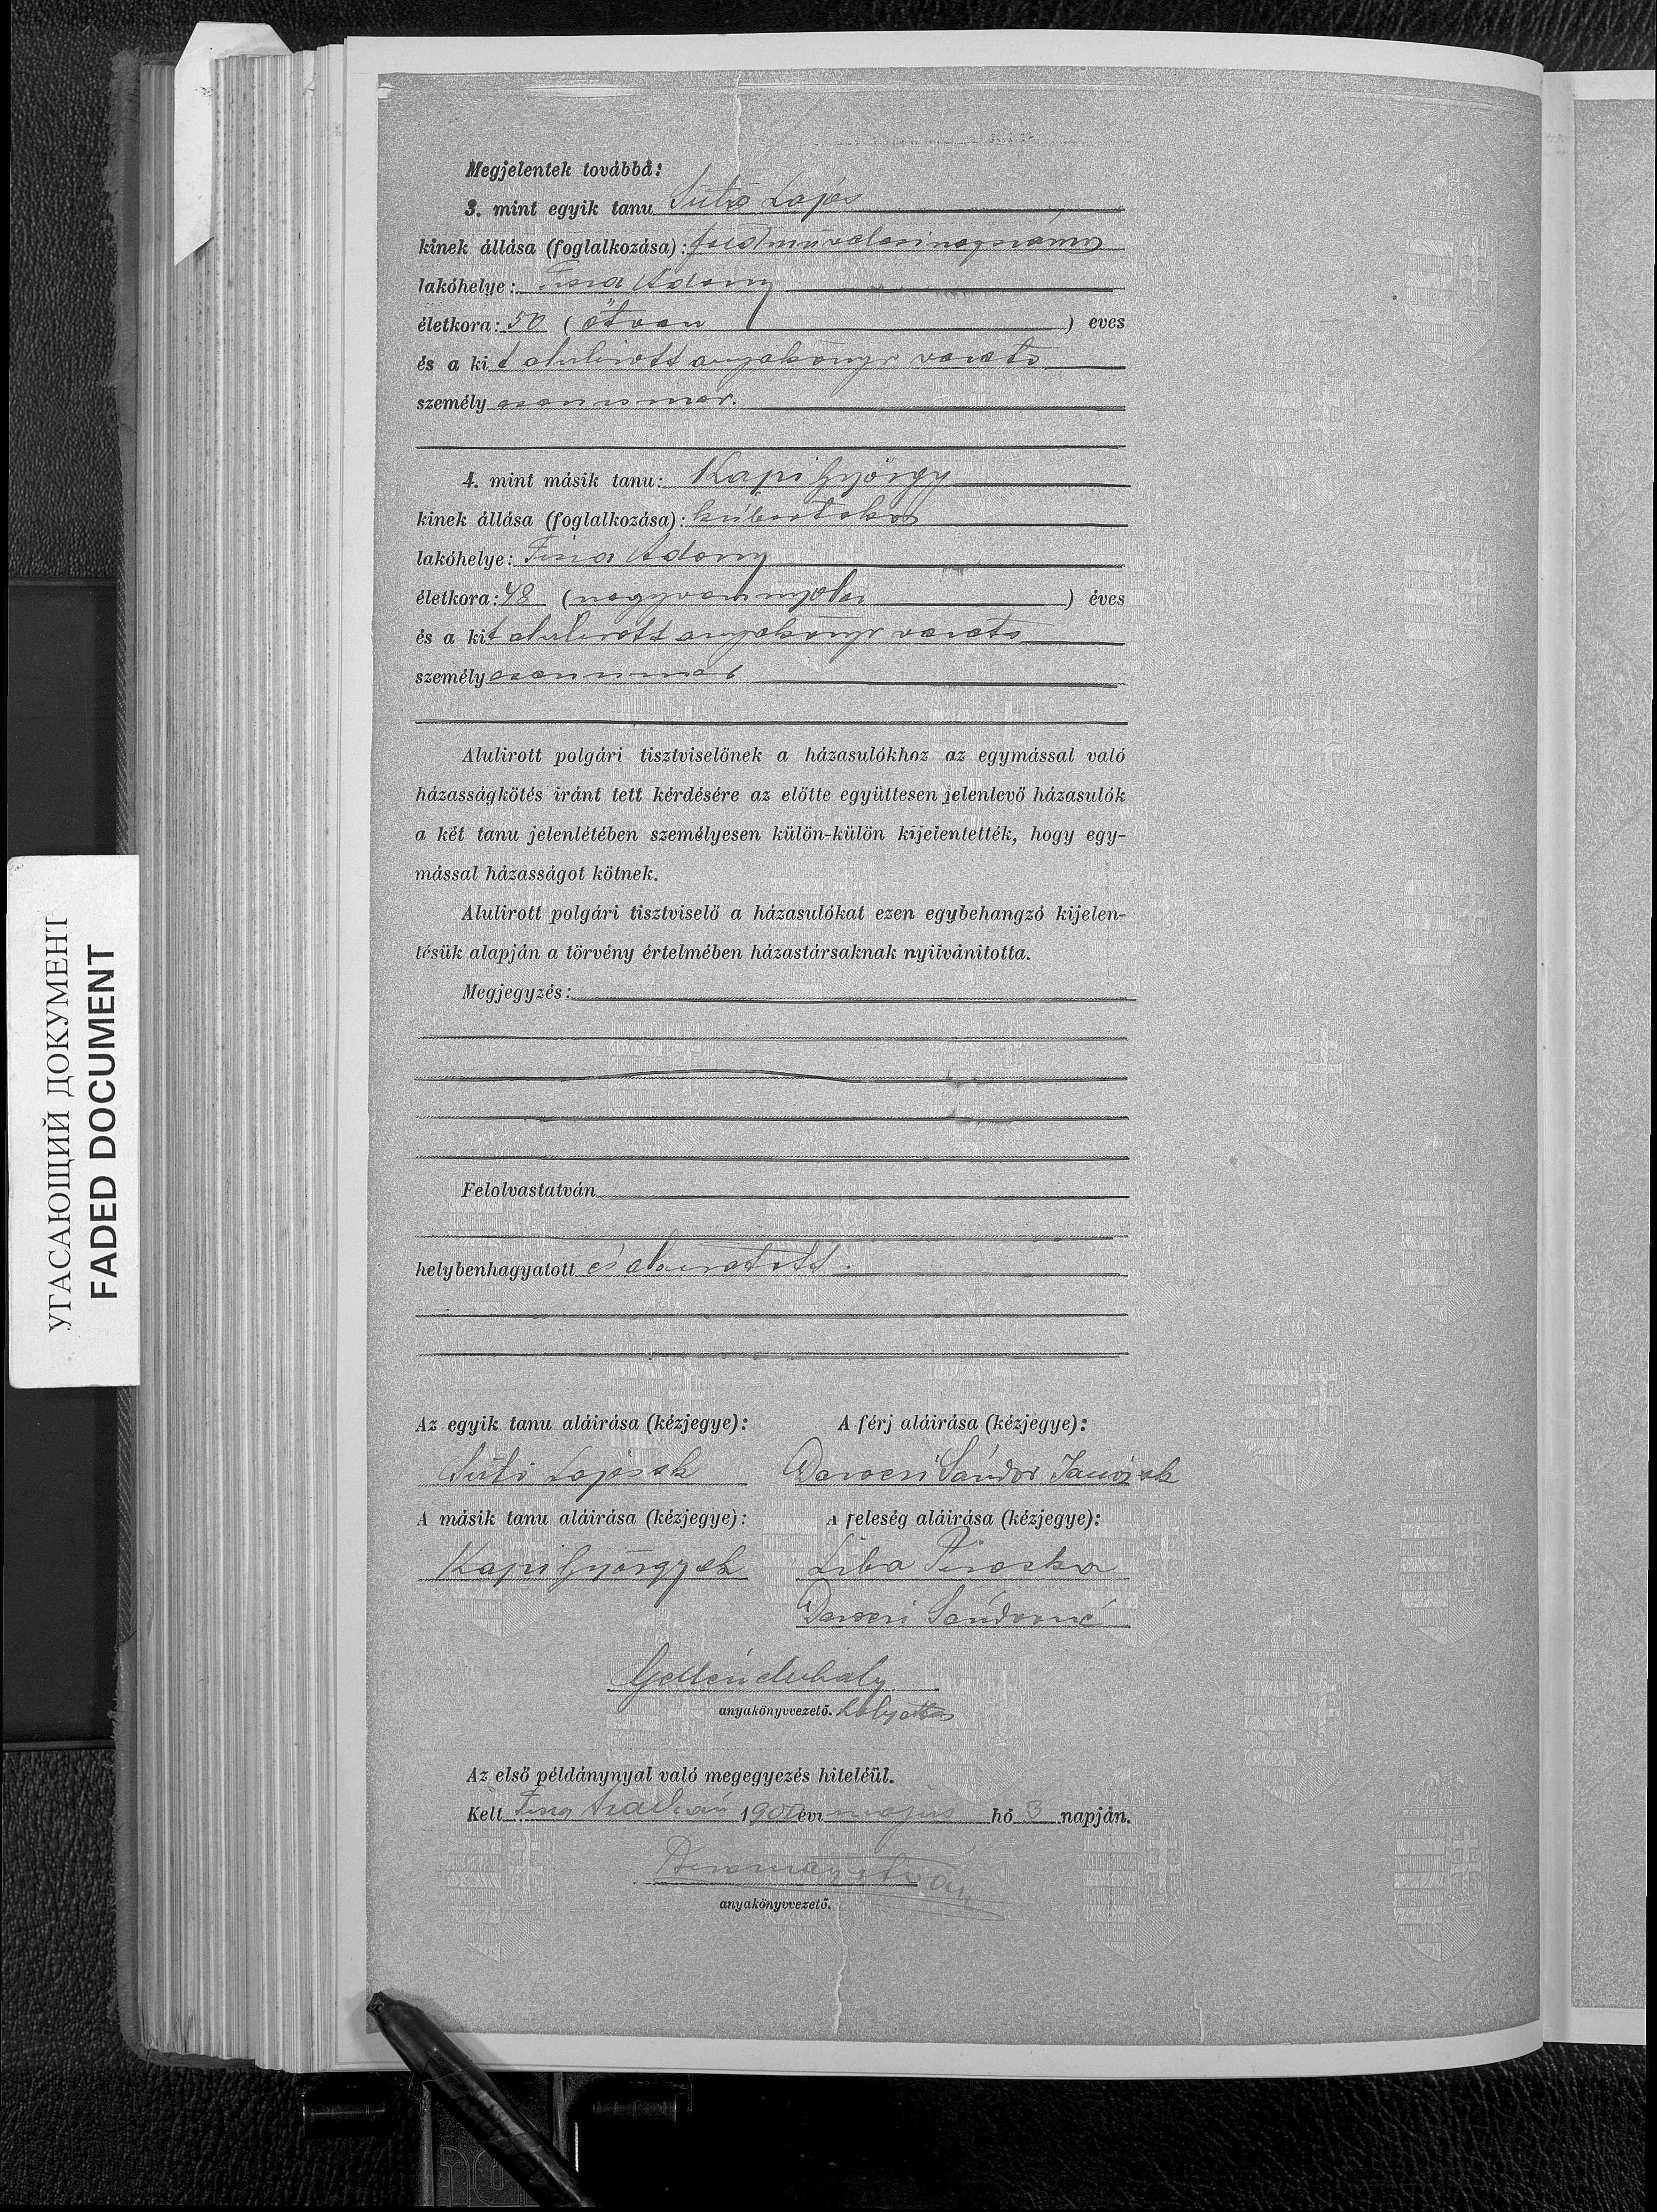 УГАСАЮЩИЙ ДОКУМЕНТ
FADED DOCUMENT
Megjelentek továbbá:
3. mint egyik tanu Sütő Lajos
kinek állása (foglalkozása):
lakóhelye: Tisza Adony
életkora: 50 (ötven) eves
és a kit alulirott anyakönyv vezető
személy
4. mint másik tanu: Kapi György
kinek állása (foglalkozása): kisbirtokos
lakóhelye: Tisza Adony
életkora: 48 (negyvennyolc) éves
és a kit alulirott anyakönyv vezető
személy
Alulirott polgári tisztviselőnek a házasulókhoz az egymással való
házasságkötés iránt tett kérdésére az előtte együttesen jelenlevő házasulók
a két tanu jelenlétében személyesen külön-külön kijelentették, hogy egy-
mással házasságot kötnek.
Alulirott polgári tisztviselő a házasulókat ezen egybehangzó kijelen-
tésük alapján a törvény értelmében házastársaknak nyilvánitotta.
Megjegyzés:
Felolvastatván
helybenhagyatott és aláiratott.
Az egyik tanu aláirása (kézjegye): A férj aláirása (kézjegye):
Sütő Lajos sk Daróczi Sándor sk
A másik tanu aláirása (kézjegye): A feleség aláirása (kézjegye):
Kapi György sk Liba Piroska
Daróczi Sándorné
Gellén Mihály
anyakönyvvezető. helyettes
Az első példánynyal való megegyezés hiteléül.
Kelt Tisza 1900 évi május hó 3 napján.
István
anyakönyvvezető.